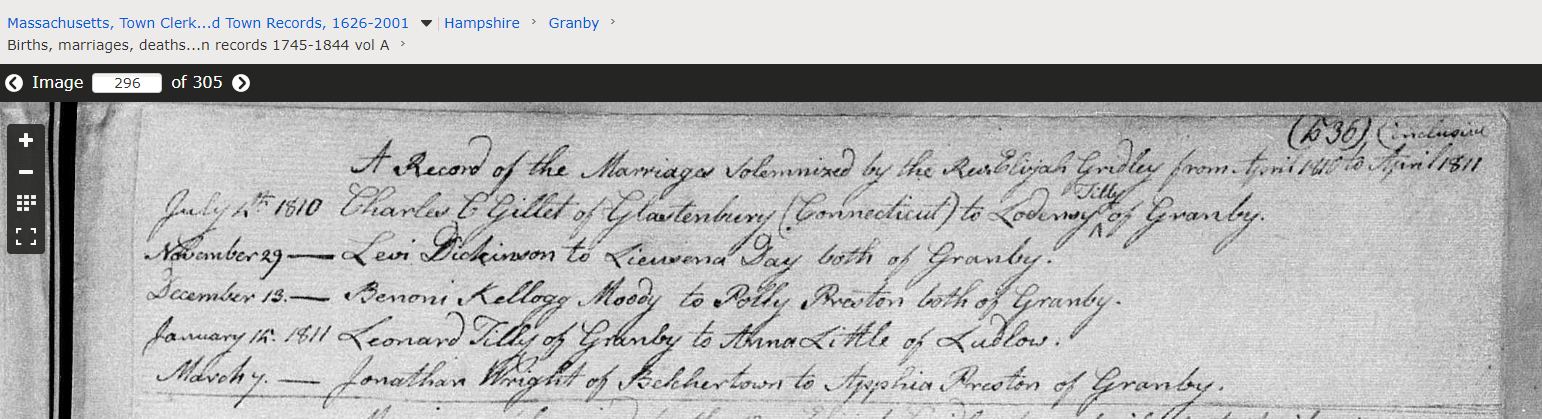 Massachusetts, Town Clerk...d Town Records, 1626-2001 Hampshire Granby
Births, marriages, deaths...n records 1745-1844 vol A
Image 296 of 305
(536) (inclusive
A Record of the Marriages solemnized by the Rev. Elijah Gridley from April 1810 to April 1811
July 4th 1810 Charles C Gillet of Glastenbury (Connecticut) to Lodemy Tilly of Granby.
November 29 — Levi Dickinson to Lieusena Day both of Granby.
December 13. — Benoni Kellogg Moody to Polly Preston both of Granby.
January 15. 1811 Leonard Tilly of Granby to Anna Little of Ludlow.
March 7. — Jonathan Wright of Belchertown to Apphia Preston of Granby.